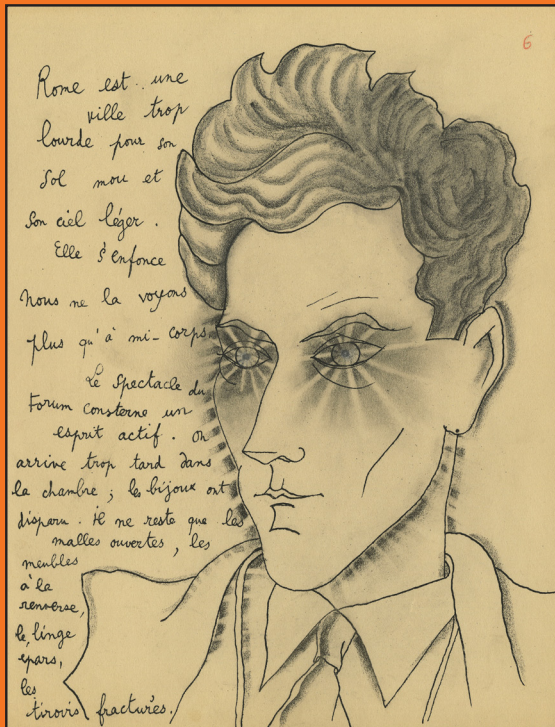 6
Rome est une
ville trop
lourde pour son
sol mou et
son ciel léger.
Elle s'enfonce
Nous ne la voyons
plus qu'à mi-corps.
Le spectacle du
Forum consterne un
esprit actif. On
arrive trop tard dans
la chambre ; les bijoux ont
disparu. Il ne reste que les
malles ouvertes, les
meubles
à la
renverse,
le linge
épars,
les
tiroirs fracturés.